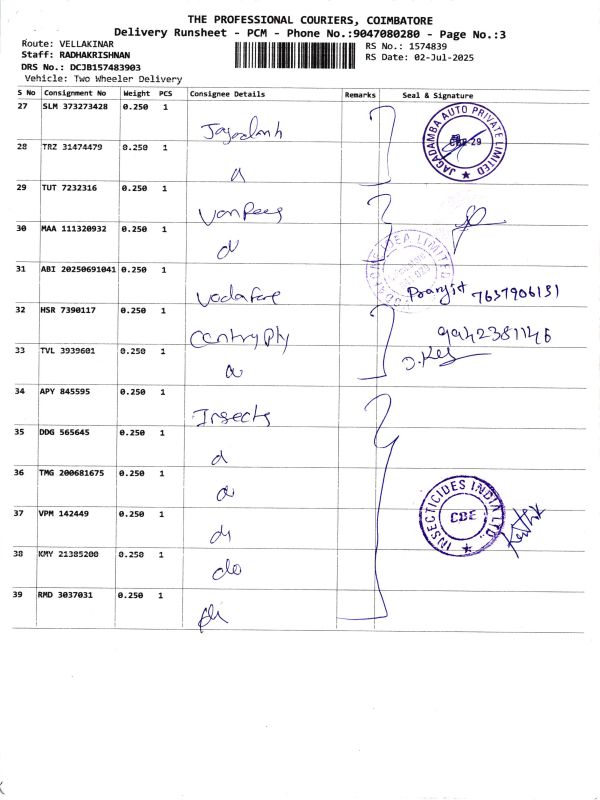 THE PROFESSIONAL COURIERS, COIMBATORE
Delivery Runsheet - PCM - Phone No.:9047080280 - Page No.:3
Route: VELLAKINAR
RS No.: 1574839
Staff: RADHAKRISHNAN
RS Date: 02-Jul-2025
DRS No.: DCJB157483903
Vehicle: Two Wheeler Delivery
S No Consignment No Weight PCS Consignee Details Remarks Seal & Signature
27 SLM 373273428 0.250 1
JAGADAMBA AUTO PRIVATE LIMITED
28 TRZ 31474479 0.250 1
29 TUT 7232316 0.250 1
30 MAA 111320932 0.250 1
31 ABI 20250691041 0.250 1 Vodafone
Pranjit 7637906131
32 HSR 7390117 0.250 1 CentryPly
9942381146
33 TVL 3939601 0.250 1
34 APY 845595 0.250 1 Insects
35 DDG 565645 0.250 1
36 TMG 200681675 0.250 1
37 VPM 142449 0.250 1
INSECTICIDES INDIA LTD.
CBE
38 KMY 21385200 0.250 1 do
39 RMD 3037031 0.250 1